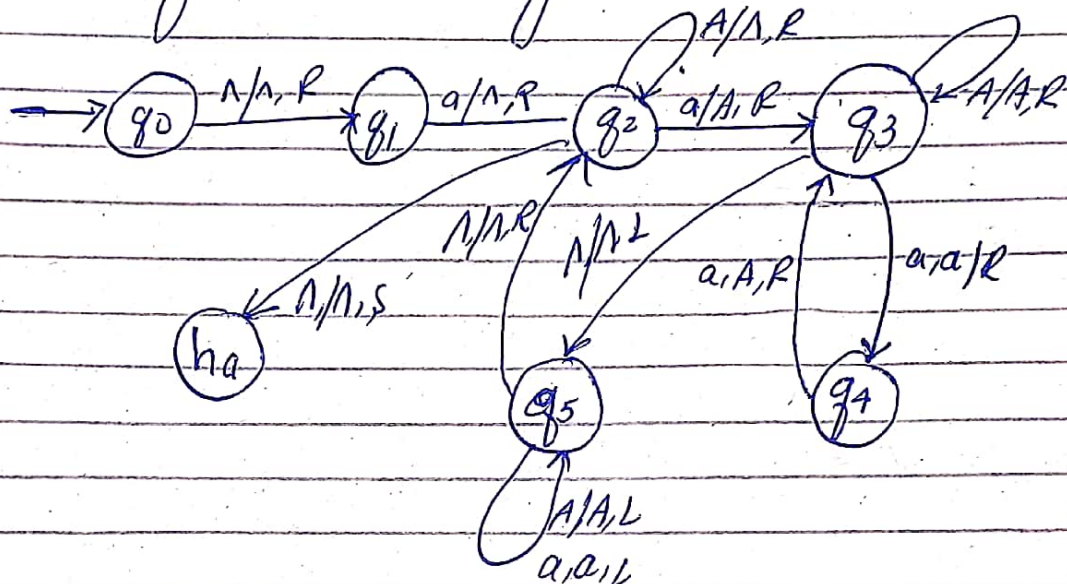 A/Λ,R
q0 Λ/Λ, R q1 a/Λ,R q2 a/A, R q3 A/A,R
Λ/Λ,R Λ/Λ,L a,A,R a,a/R
Λ/Λ,S
ha q5 q4
A/A,L
a,a,L